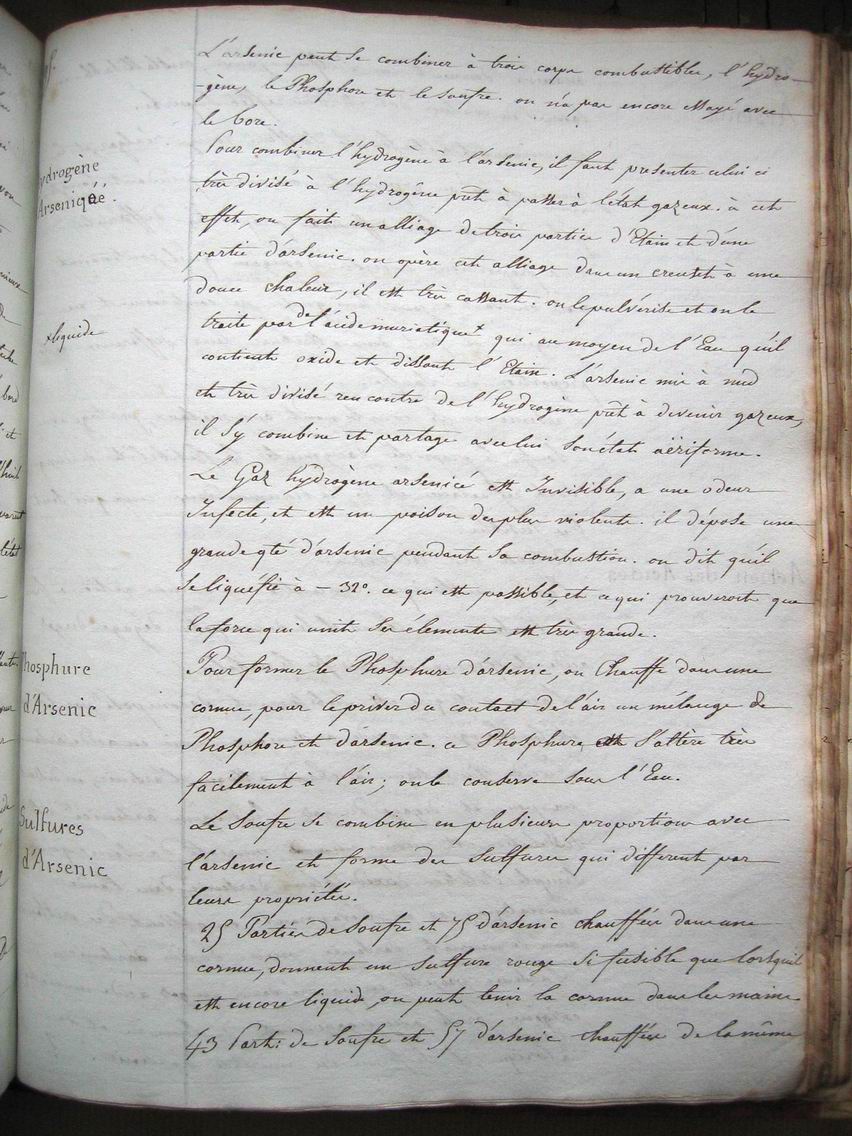 L'arsenic peut se combiner à trois corps combustibles, l'hydro-
-gène, le Phosphore et le soufre. on n'a pas encore essayé avec
le bore.
Hydrogène
Arseniqué.
Pour combiner l'hydrogène à l'arsenic, il faut presenter celui ci
très divisé à l'hydrogène prêt à passer à l'état gazeux. à cet
effet, on fait un alliage de trois parties d'Etain et d'une
partie d'arsenic. on opère cet alliage dans un creuset à une
douce chaleur, il est très cassant. on le pulvérise et on le
traite par de l'acide muriatique x qui au moyen de l'Eau qu'il
x liquide
contient oxide et dissout l'Etain. L'arsenic mis à nud
et très divisé rencontre de l'hydrogène prêt à devenir gazeux,
il s'y combine et partage avec lui son état aëriforme.
Le Gaz hydrogène arsenicé est Invisible, a une odeur
Infecte, et est un poison des plus violents. il dépose une
grande qté d'arsenic pendant sa combustion. on dit qu'il
se liquéfie à - 32°. ce qui est possible, et ce qui prouveroit que
la force qui unit ses élements est très grande.
Phosphure
d'Arsenic
Pour former le Phosphure d'arsenic, on chauffe dans une
cornue, pour le priver du contact de l'air un mélange de
Phosphore et d'arsenic. ce Phosphure s'altère très
facilement à l'air; on le conserve sous l'Eau.
Sulfures
d'Arsenic
Le Soufre se combine en plusieurs proportions avec
l'arsenic et forme des sulfures qui different par
leurs propriétés.
25 Parties de Soufre et 75 d'arsenic chauffées dans une
cornue, donnent un sulfure rouge si fusible que lorsqu'il
est encore liquide, on peut tenir la cornue dans les mains
43 Parti: de Soufre et 57 d'arsenic chauffées de la même